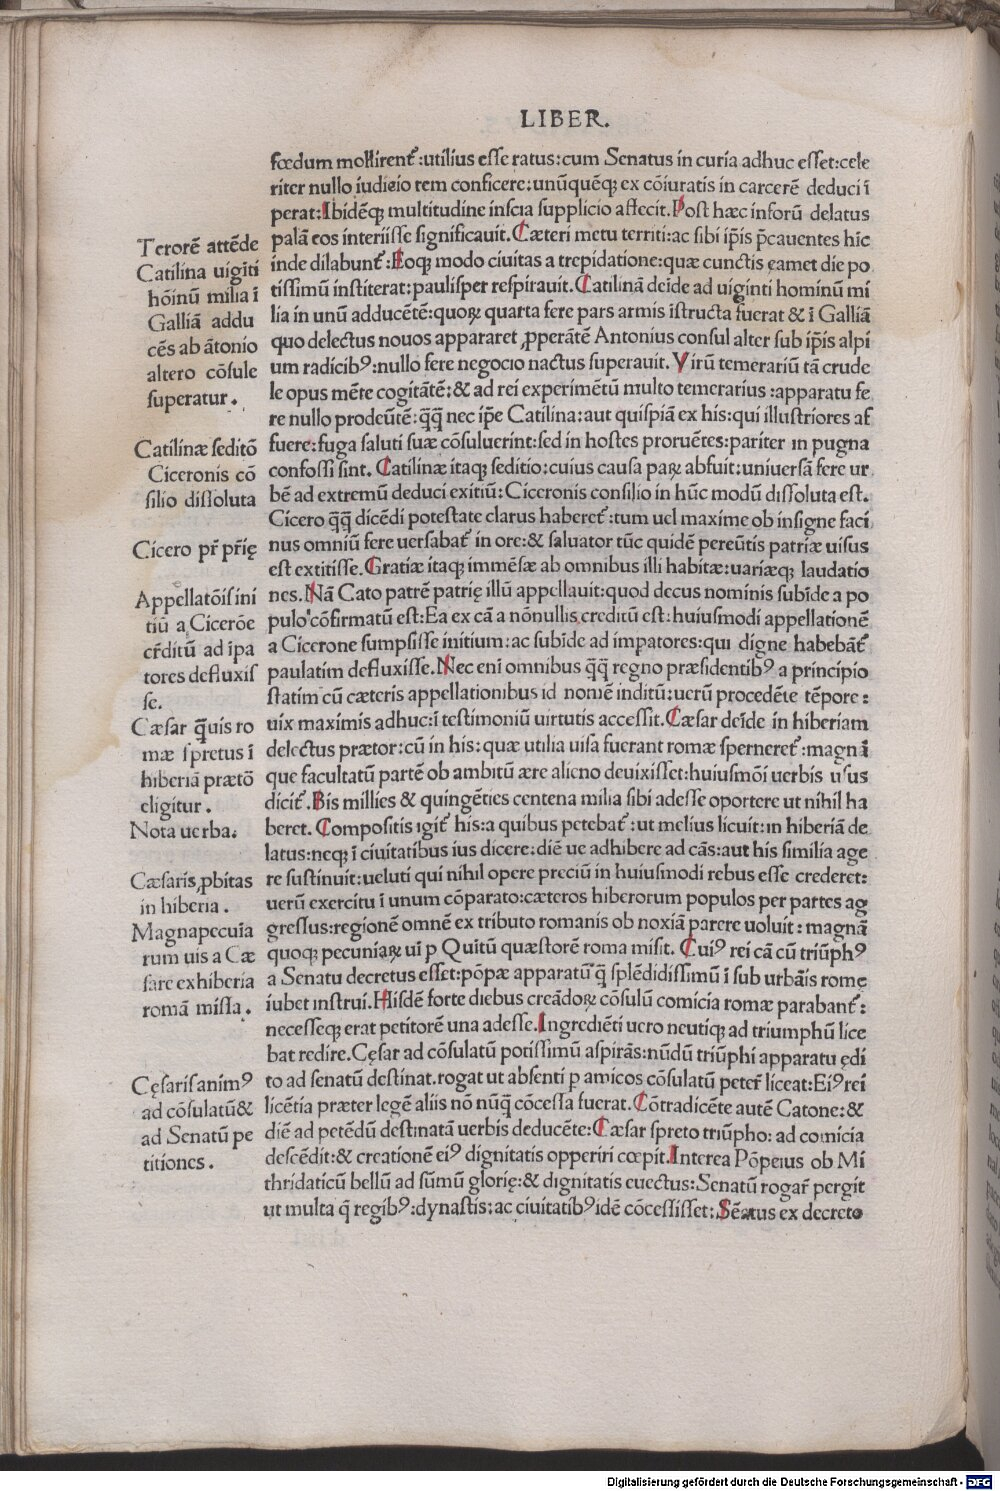 LIBER.
fœdum mollirent᷑:utilius esse ratus:cum Senatus in curia adhuc esset:cele
riter nullo iudicio rem conficere:unūquēq; ex cōiuratis in carcerē deduci ī
perat:Ibidēq; multitudine inscia supplicio affecit.Post hæc in forū delatus
palā eos interiisse significauit.Cæteri metu territi:ac sibi ip̄is p̄cauentes hīc
inde dilabunt᷑:Eoq; modo ciuitas a trepidatione:quæ cunctis eamet die po
tissimū institerat:paulisper respirauit.Catilinā deīde ad uiginti hominū mi
lia in unū adducētē:quoꝝ quarta fere pars armis īstructa fuerat & ī Galliā
quo delectus nouos appararet ꝓperātē Antonius consul alter sub ip̄is alpi
um radicibꝰ:nullo fere negocio nactus superauit. Virū temerariū tā crude
le opus mēte cogitātē:& ad rei experimētū multo temerarius:apparatu fe
re nullo prodeūtē:q̄q̄ nec ip̄e Catilina:aut quispiā ex his:qui illustriores af
fuere:fuga saluti suæ cōsuluerint:sed in hostes proruētes:pariter in pugna
confossi sint. Catilinæ itaq; seditio:cuius causa paꝝ abfuit:uniuersā fere ur
bē ad extremū deduci exitiū:Ciceronis consilio in hūc modū dissoluta est.
Cicero q̄q̄ dicēdi potestate clarus haberet᷑:tum uel maxime ob insigne faci
nus omniū fere uersabat᷑ in ore:& saluator tūc quidē pereūtis patriæ uisus
est extitisse.Gratiæ itaq; immēsæ ab omnibus illi habitæ:uariæq; laudatio
nes.Nā Cato patrē patrię illū appellauit:quod decus nominis subīde a po
pulo cōfirmatū est:Ea ex cā a nōnullis creditū est:huiusmodi appellationē
a Cicerone sumpsisse initium:ac subīde ad impatores:qui digne habebāt᷑
paulatim defluxisse.Nec enī omnibus q̄q̄ regno præsidentibꝰ a principio
statim cū cæteris appellationibus id nomē inditū:uerū procedēte tēpore:
uix maximis adhuc:ī testimoniū uirtutis accessit.Cæsar deīde in hiberiam
delectus prætor:cū in his:quæ utilia uisa fuerant romæ sperneret᷑:magnā
que facultatū partē ob ambitū ære alieno deuixisset:huiusmōi uerbis usus
dicit᷑.Bis millies & quingēties centena milia sibi adesse oportere ut nihil ha
beret. Compositis igit᷑ his:a quibus petebat᷑:ut melius licuit:in hiberiā de
latus:neq; ī ciuitatibus ius dicere:diē ue adhibere ad cās:aut his similia age
re sustinuit:ueluti qui nihil opere preciū in huiusmodi rebus esse crederet:
uerū exercitu ī unum cōparato:cæteros hiberorum populos per partes ag
gressus:regionē omnē ex tributo romanis ob noxiā parere uoluit:magnā
quoq; pecuniaꝝ uī p Quītū quæstorē roma misit. Cuiꝰ rei cā cū triūphꝰ
a Senatu decretus esset:pōpæ apparatū q̄ splēdidissimū ī sub urbāis rome
iubet instrui.Hisdē forte diebus creādoꝝ cōsulū comicia romæ parabant᷑:
necesseq; erat petitorē una adesse.Ingrediēti uero neutiq; ad triumphū lice
bat redire.Cęsar ad cōsulatū potissimū aspirās:nūdū triūphi apparatu ędi
to ad senatū destinat.rogat ut absenti p amicos cōsulatū peter᷑ liceat:Eiꝰ rei
licētia præter legē aliis nō nūq̄ cōcessa fuerat.Cōtradicēte autē Catone:&
diē ad petēdū destinatā uerbis deducēte:Cæsar spreto triūpho: ad comicia
descēdit:& creationē eiꝰ dignitatis opperiri cœpit.Interea Pōpeius ob Mi
thridaticū bellū ad sūmū glorię:& dignitatis euectus:Senatū rogar᷑ pergit
ut multa q̄ regibꝰ:dynastis:ac ciuitatibꝰ idē cōcessisset:Sēatus ex decreto
Terorē attēde
Catilina uigīti
hōinū milia ī
Galliā addu
cēs ab ātonio
altero cōsule
superatur.
Catilinæ seditō
Ciceronis cō
silio dissoluta
Cicero pr̄ pr̄ię
Appellatōis ini
tiū a Cicerōe
cr̄ditū ad īpa
tores defluxis
se.
Cæsar q̄uis ro
mæ spretus ī
hiberiā prætō
eligitur.
Nota uerba.
Cæsaris ꝓbitas
in hiberia.
Magna pecuīa
rum uis a Cæ
sare ex hiberia
romā missa.
Cęsaris animꝰ
ad cōsulatū&
ad Senatū pe
titiones.
Digitalisierung gefördert durch die Deutsche Forschungsgemeinschaft - DFG